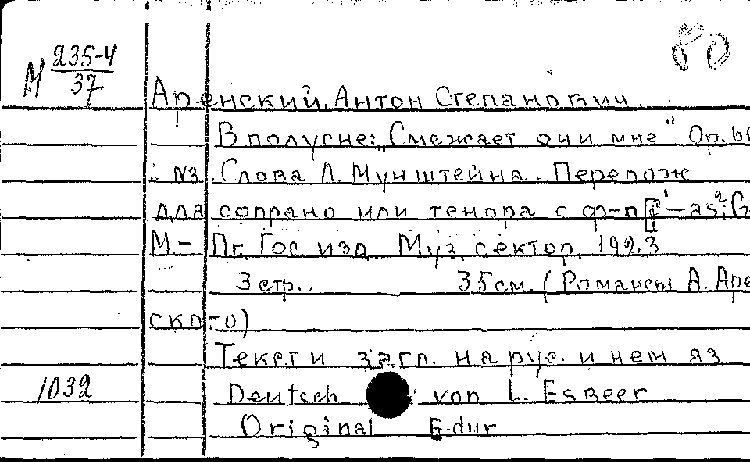 М 235-4
37
80
Аренский, Антон Степанович
В полусне: „Смежает очи мне" Ор.
№3. Слова Л. Мунштейна. Перелож
для сопрано или тенора с ф-п
М.- Пг. Гос изд. Муз. сектор, 1923
3 стр.. 35 см. (Романсы А. Аре
ско-о)
Текст и загл. на рус. и нем яз
1032
Deutsch von L. Esbeer
Original E-dur